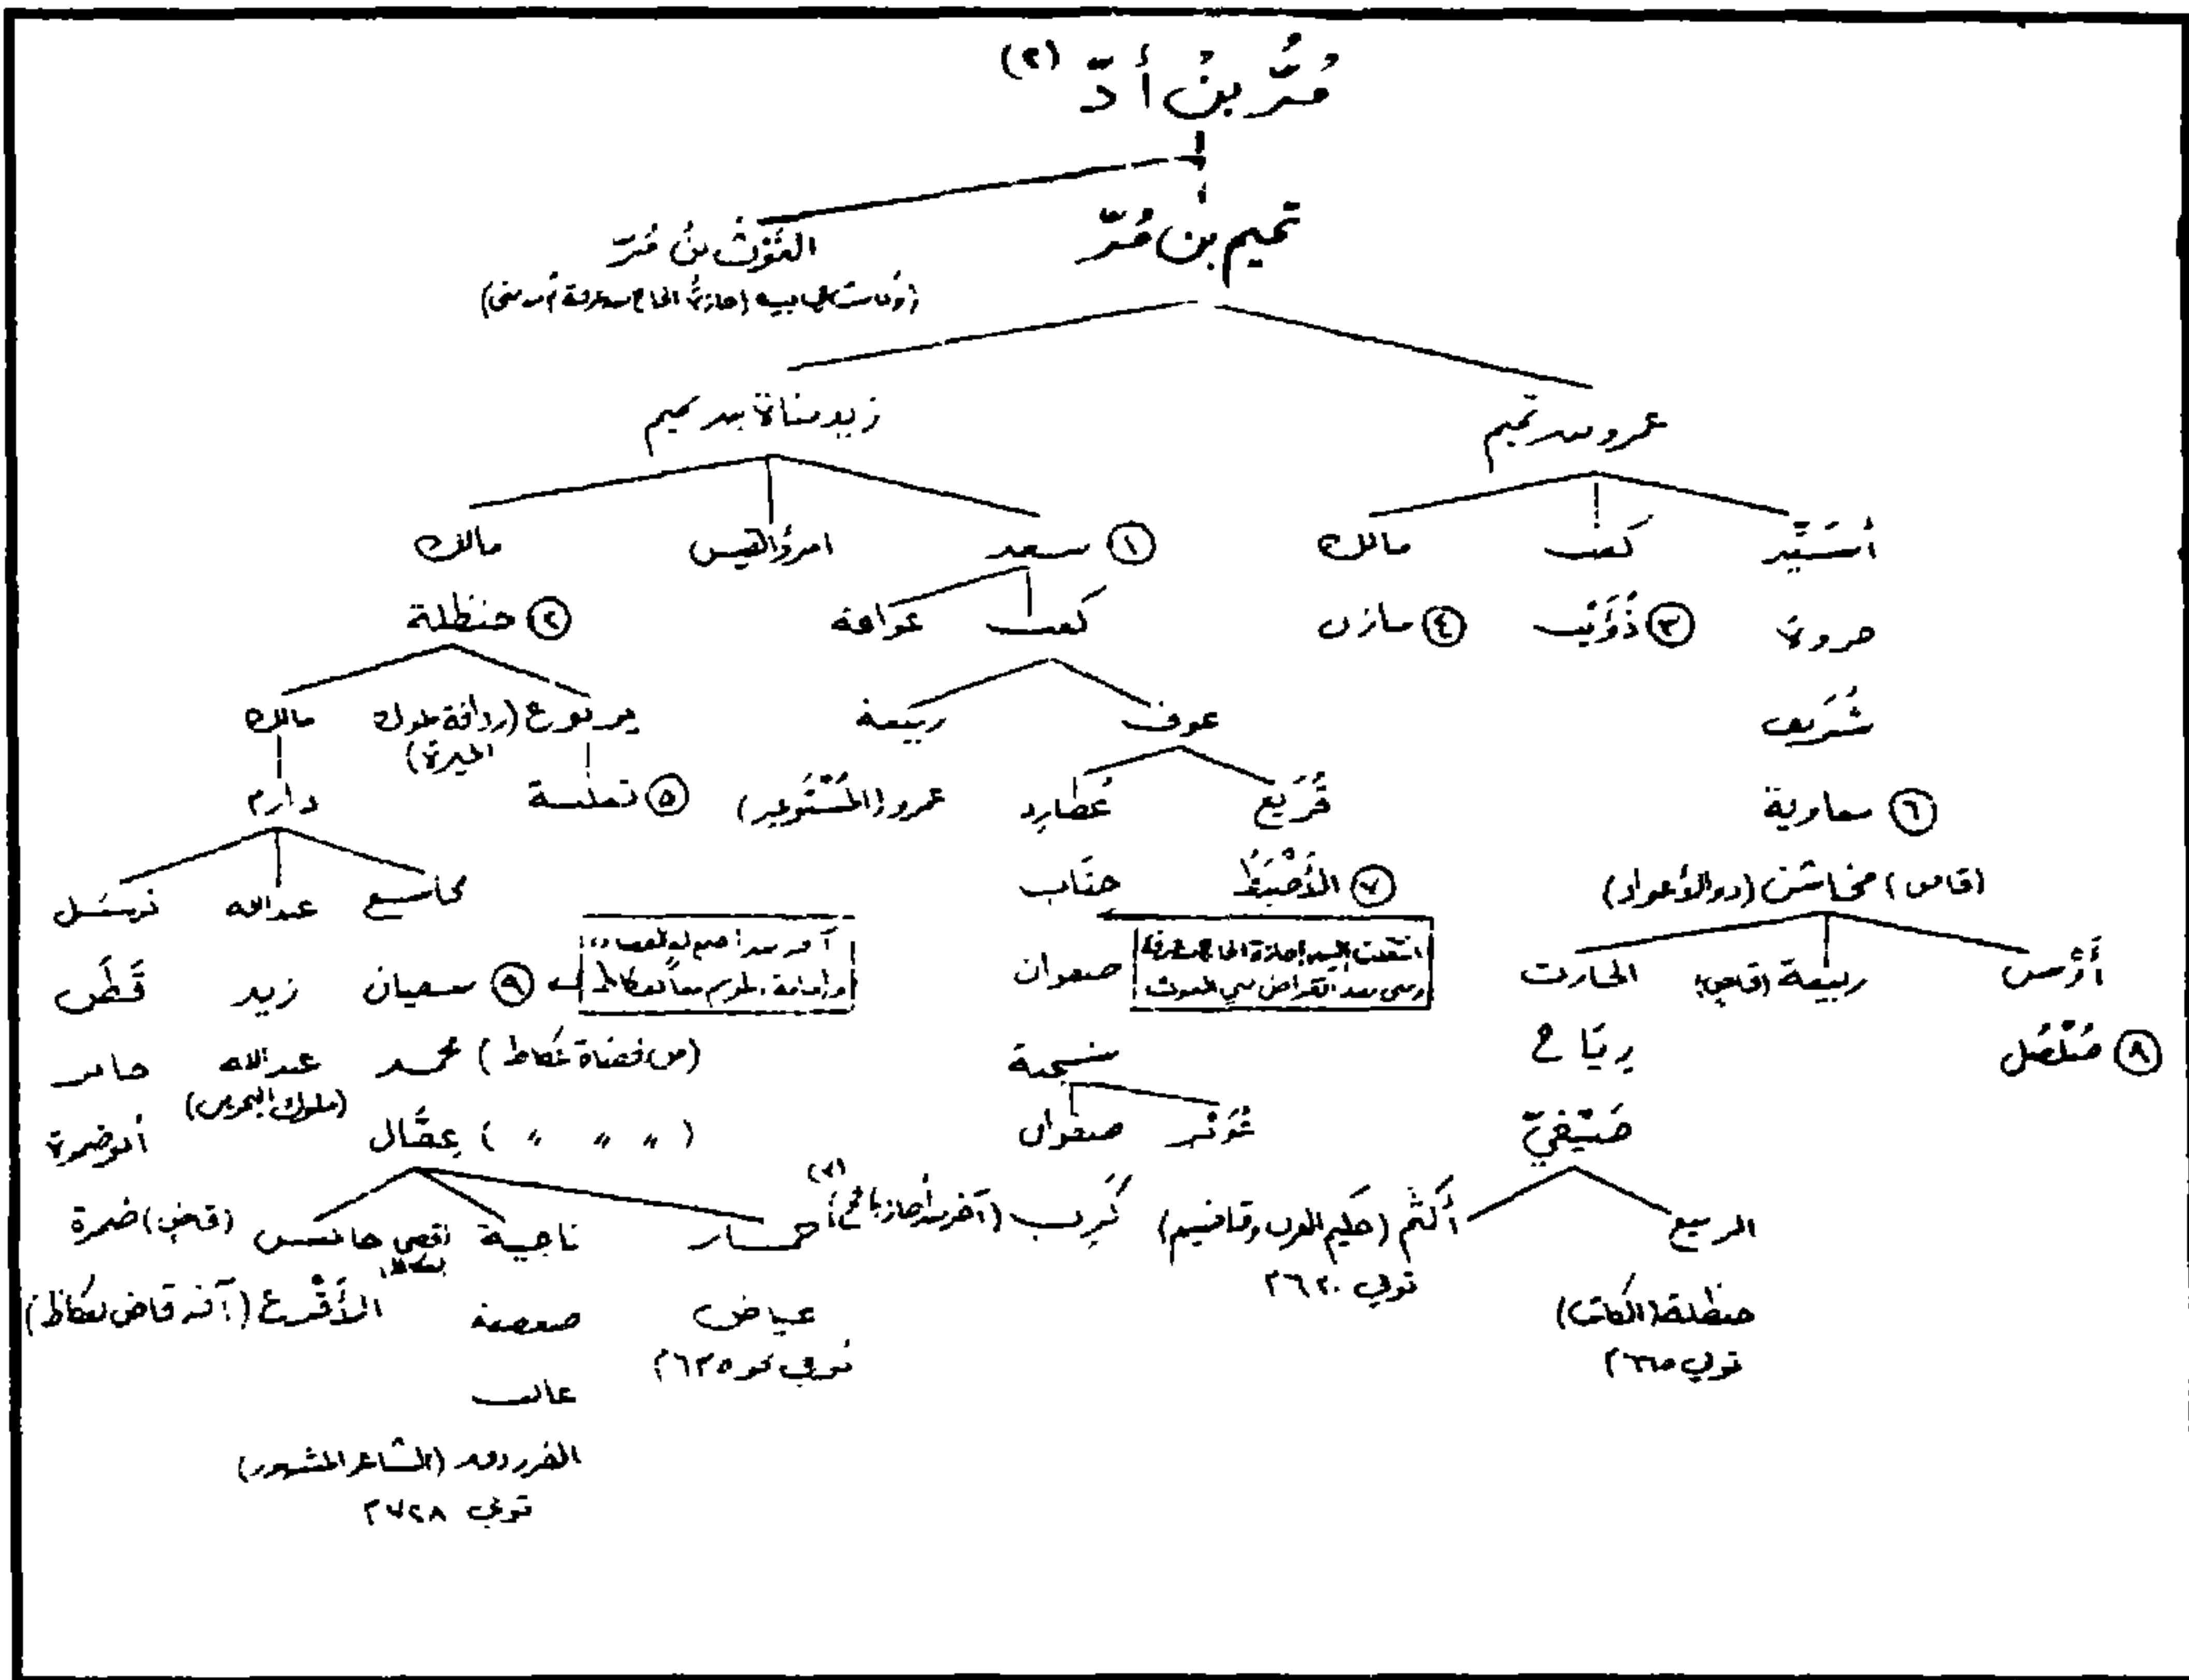 مُرُّ بنُ أدّ (٢)
تميم بن مُرّ
الغَوْث بنُ مُرّ
(وكانت في بنيه إجازة الحاج من عرفة ومن منى)
عمرو بن تميم
زيد مناة بن تميم
أُسَيِّد
كعب
مالك
① سعد
امرؤ القيس
مالك
جروة
③ ذُؤَيب
④ مازن
كعب
عوافة
② حنظلة
شُرَيف
عوف
ربيعة
يربوع (ردافة ملوك الحيرة)
مالك
⑥ معاوية
قُرَيع
عُطارِد
عمرو (المُسْتَوغِر)
⑤ ثعلبة
دارم
(قاض) مخاشن (ذو الأعواد)
⑦ الأَضْبَطُ
جناب
مجاشع
عبد الله
نهشل
أَوْس
ربيعة (قاض)
الحارث
انتقلت إليه إجازة الحاج من عرفة
ومنى بعد انقراض بني الغوث
صفوان
آخر من اجتمع له القضاء
وإمامة الموسم معاً بعكاظ
⑨ سفيان
زيد
قَطَن
⑧ صُلْصُل
رياح
سجنة
(من قضاة عكاظ) محمد
عبد الله
(ملوك البحرين)
جابر
صَيْفيّ
عُوَيْر
صفوان
( " " " ) عِقال
أبو ضمرة
الربيع
أكثم (حكيم العرب وقاضيهم)
توفي ٦٢٠م
كَرِب (آخر من أجاز بالحج)
حمار
ناجية
حابس
(قاض) ضمرة
حنظلة (الكاتب)
توفي ٦٦٥م
عياض
توفي نحو ٦٢٥م
صعصعة
الأَقْرع (آخر قاض لعكاظ)
غالب
الفرزدق (الشاعر المشهور)
توفي ٧٢٨م